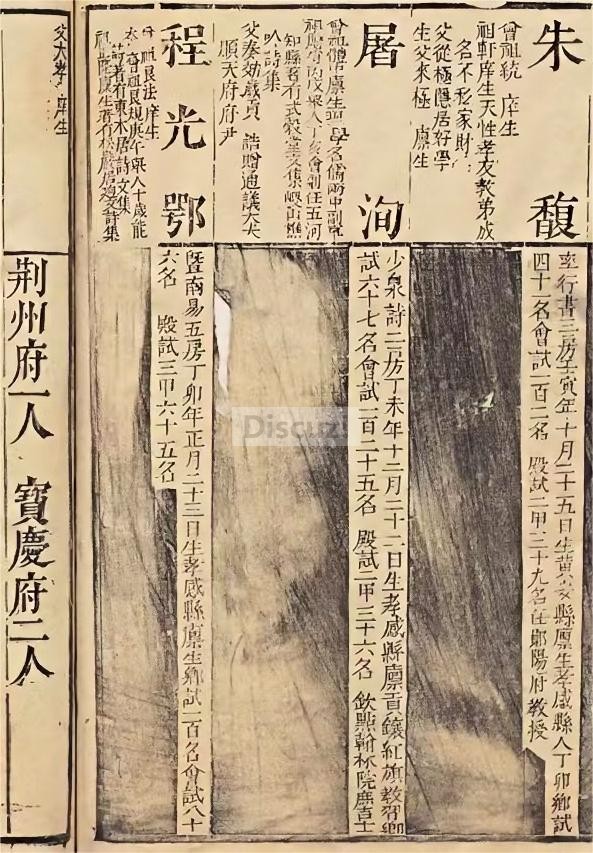 朱馥
曾祖統 庠生
祖軒庠生天性孝友教弟成
名不私家財
父從極隱居好學
生父來極 廩生
行書三房壬寅年十月二十五日生黃安縣廩生孝感縣人丁卯鄉試
四十一名會試一百二名 殿試二甲三十九名任鄖陽府教授
屠洵
曾祖體 廩生
知縣著有式穀堂文集
吟詩集
父奏劾歲貢 誥贈通議大夫
順天府府尹
少泉詩二房丁未年十二月二十二日生孝感縣廩貢鑲紅旗教習鄉
試六十七名會試一百二十五名 殿試二甲三十六名 欽點翰林院庶吉士
程光鄂
曾祖良法 庠生
本 曾祖良規庚午舉人十歲能
詩著有東木居詩文集
暨南易五房丁卯年正月二十三日生孝感縣廩生鄉試二百名會試八十
六名 殿試三甲六十五名
父大孝 庠生
荊州府一人 寶慶府二人
Discuz!